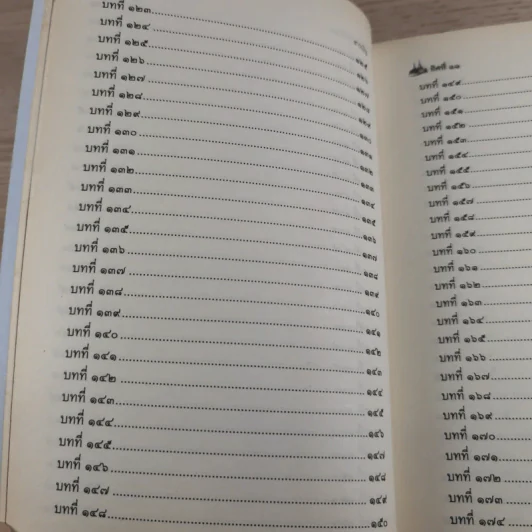 บทที่ ๑๒๓........๑๒๕
บทที่ ๑๒๔........๑๒๖
บทที่ ๑๒๕........๑๒๗
บทที่ ๑๒๖........๑๒๘
บทที่ ๑๒๗........๑๒๙
บทที่ ๑๒๘........๑๓๐
บทที่ ๑๒๙........๑๓๑
บทที่ ๑๓๐........๑๓๒
บทที่ ๑๓๑........๑๓๓
บทที่ ๑๓๒........๑๓๔
บทที่ ๑๓๓........๑๓๕
บทที่ ๑๓๔........๑๓๖
บทที่ ๑๓๕........๑๓๗
บทที่ ๑๓๖........๑๓๘
บทที่ ๑๓๗........๑๓๙
บทที่ ๑๓๘........๑๔๐
บทที่ ๑๓๙........๑๔๑
บทที่ ๑๔๐........๑๔๒
บทที่ ๑๔๑........๑๔๓
บทที่ ๑๔๒........๑๔๔
บทที่ ๑๔๓........๑๔๕
บทที่ ๑๔๔........๑๔๖
บทที่ ๑๔๕........๑๔๗
บทที่ ๑๔๖........๑๔๘
บทที่ ๑๔๗........๑๔๙
บทที่ ๑๔๘........๑๕๐
บทที่ ๑๔๙........
บทที่ ๑๕๐........
บทที่ ๑๕๑........
บทที่ ๑๕๒........
บทที่ ๑๕๓........
บทที่ ๑๕๔........
บทที่ ๑๕๕........
บทที่ ๑๕๖........
บทที่ ๑๕๗........
บทที่ ๑๕๘........
บทที่ ๑๕๙........
บทที่ ๑๖๐........
บทที่ ๑๖๑........
บทที่ ๑๖๒........
บทที่ ๑๖๓........
บทที่ ๑๖๔........
บทที่ ๑๖๕........
บทที่ ๑๖๖........
บทที่ ๑๖๗........
บทที่ ๑๖๘........
บทที่ ๑๖๙........
บทที่ ๑๗๐........
บทที่ ๑๗๑........
บทที่ ๑๗๒........
บทที่ ๑๗๓........
บทที่ ๑๗๔........